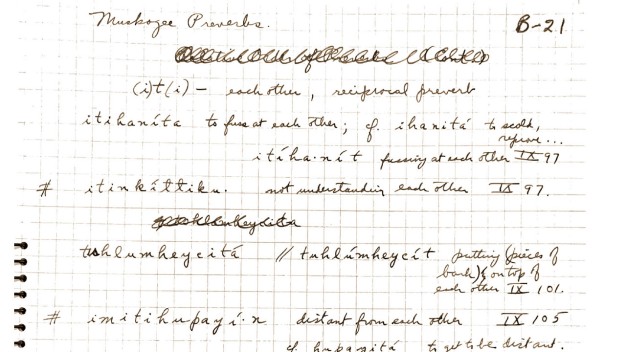 Muskogee Preverbs. B-21
(i)t(i) – each other, reciprocal preverb
itihaníta to fuss at each other; cf. ihanitá to scold,
reprove...
itíha·nít fussing at each other IX 97
# itinkíłłiku. not understanding each other IX 97.
tuhlumheycitá // tuhlúmheycít putting (pieces of
bark) on top of
each other IX 101.
# imitihupayí·n distant from each other IX 105
cf. hupanitá to get to be distant.